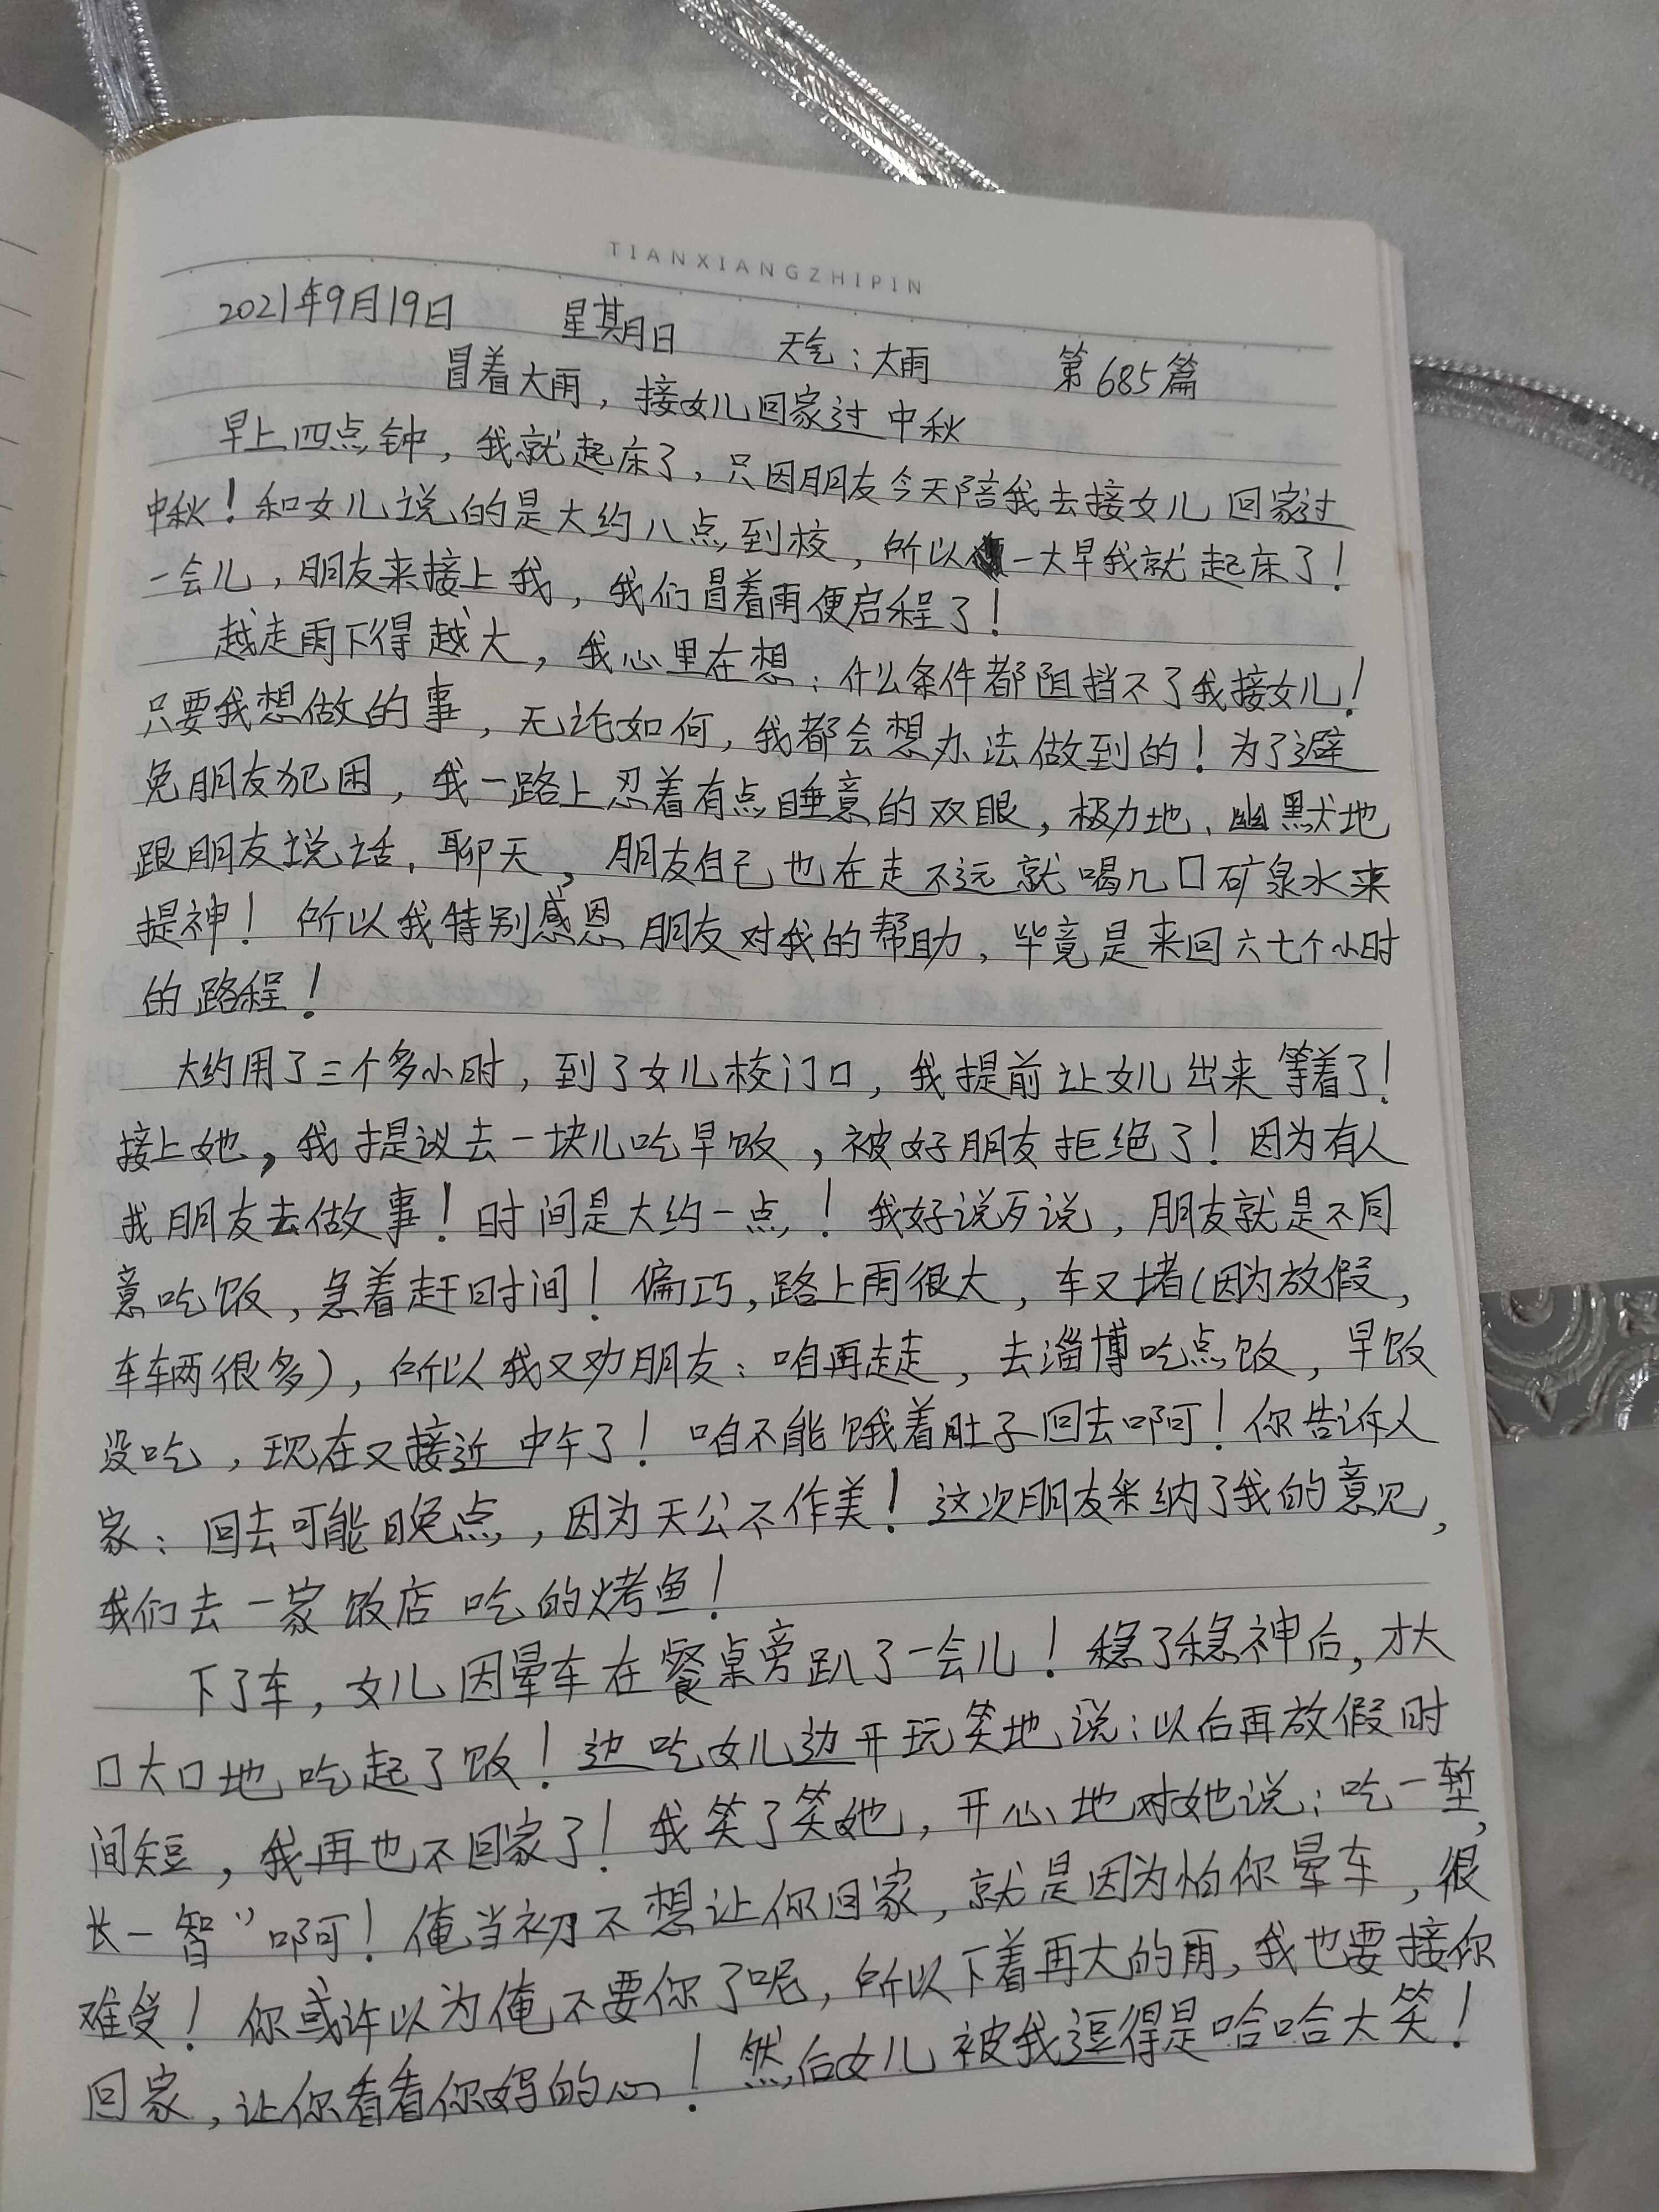 TIANXIANGZHIPIN
2021年9月19日 星期日 天气：大雨 第685篇
冒着大雨，接女儿回家过中秋
早上四点钟，我就起床了，只因朋友今天陪我去接女儿回家过
中秋！和女儿说的是大约八点到校，所以一大早我就起床了！
一会儿，朋友来接上我，我们冒着雨便启程了！
越走雨下得越大，我心里在想：什么条件都阻挡不了我接女儿！
只要我想做的事，无论如何，我都会想办法做到的！为了避
免朋友犯困，我一路上忍着有点睡意的双眼，极力地、幽默地
跟朋友说话，聊天，朋友自己也在走不远就喝几口矿泉水来
提神！所以我特别感恩朋友对我的帮助，毕竟是来回六七个小时
的路程！
大约用了三个多小时，到了女儿校门口，我提前让女儿出来等着了！
接上她，我提议去一块儿吃早饭，被好朋友拒绝了！因为有人
找朋友去做事！时间是大约一点！我好说歹说，朋友就是不同
意吃饭，急着赶时间！偏巧，路上雨很大，车又堵（因为放假，
车辆很多），所以我又劝朋友：咱再走走，去淄博吃点饭，早饭
没吃，现在又接近中午了！咱不能饿着肚子回去啊！你告诉人
家：回去可能晚点，因为天公不作美！这次朋友采纳了我的意见，
我们去一家饭店吃的烤鱼！
下了车，女儿因晕车在餐桌旁趴了一会儿！稳了稳神后，才大
口大口地吃起了饭！边吃女儿边开玩笑地说：以后再放假时
间短，我再也不回家了！我笑了笑她，开心地对她说：吃一堑，
长一智”啊！俺当初不想让你回家，就是因为怕你晕车，很
难受！你或许以为俺不要你了呢，所以下着再大的雨，我也要接你
回家，让你看看你妈的心！然后女儿被我逗得是哈哈大笑！